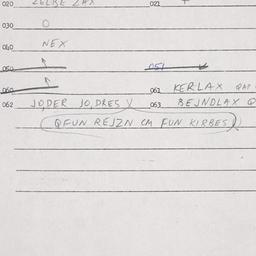 020 ZELBE ZAX 021 +
030 0
040 NEX
050 051
060 061 KERLAX
062 JO,DER JO,DRES V 063 BEJNDLAX
QFUN REJZN CM FUN KIRBES